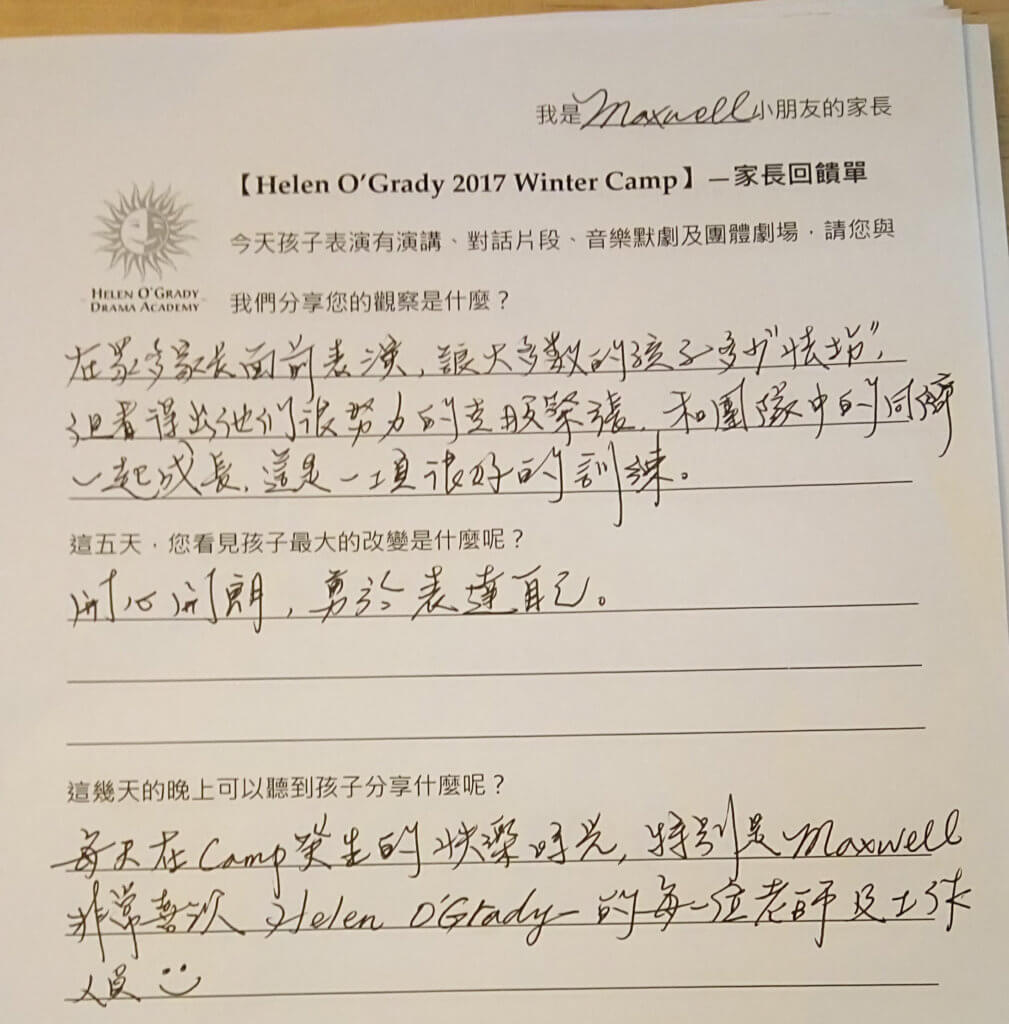 我是Maxwell小朋友的家長
【Helen O'Grady 2017 Winter Camp】—家長回饋單
今天孩子表演有演講、對話片段、音樂默劇及團體劇場，請您與
HELEN O'GRADY
DRAMA ACADEMY
我們分享您的觀察是什麼？
在眾多家長面前表演，讓大多數的孩子多少"怯場"，
但看得出他们很努力的克服緊張，和團隊中的同儕
一起成長，這是一項很好的訓練。
這五天，您看見孩子最大的改變是什麼呢？
開心開朗，勇於表達自己。
這幾天的晚上可以聽到孩子分享什麼呢？
每天在Camp發生的快樂時光，特別是Maxwell
非常喜欢 Helen O'Grady 的每一位老師及工作
人員